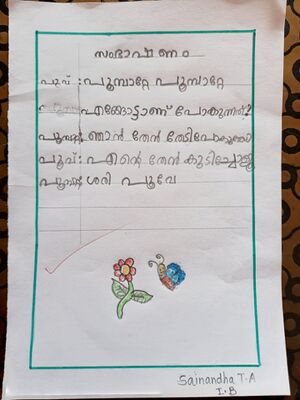 സംഭാഷണം
പൂവ് : പൂമ്പാറ്റേ പൂമ്പാറ്റേ
എങ്ങോട്ടാണ് പോകുന്നത്?
പൂമ്പാറ്റ: ഞാൻ തേൻ തേടിപോകുന്നു
പൂവ്: എന്റെ തേൻ കുടിച്ചോളൂ
പൂമ്പാറ്റ: ശരി പൂവേ
Sainandha T.A
I.B